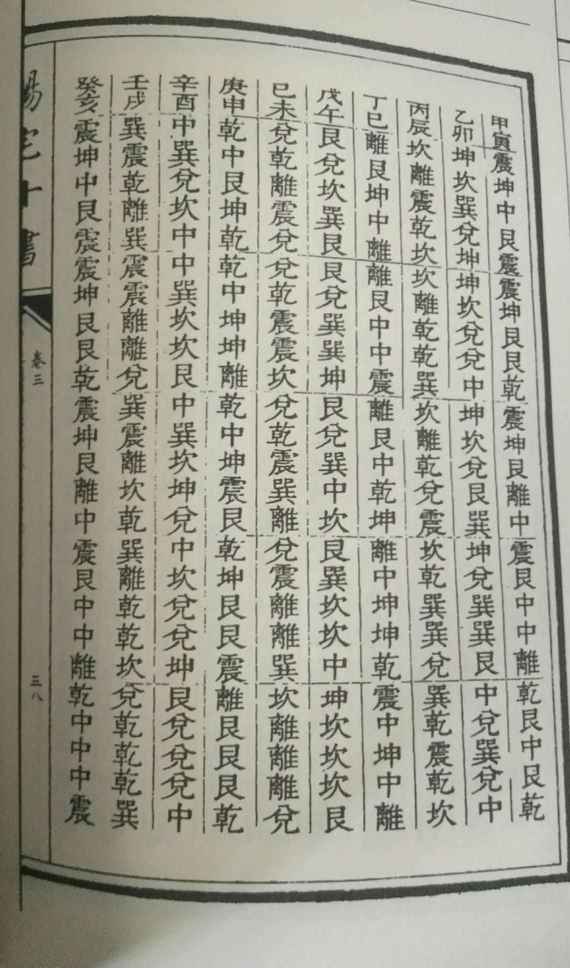 甲寅震坤中艮震震坤艮艮乾震坤艮離中震艮中中離乾艮中艮乾
乙卯坤坎巽兌坤坤坎兌兌中坤坎兌艮巽坤兌巽巽艮中兌巽兌中
丙辰坎離震乾坎坎離乾乾巽坎離乾兌震坎乾巽巽兌巽乾震乾坎
丁巳離艮坤中離離艮中中震離艮中乾坤離中坤坤乾震中坤中離
戊午艮兌坎巽艮艮兌巽巽坤艮兌巽中坎艮巽坎坎中坤坎坎坎艮
己未兌乾離震兌兌乾震震坎兌乾震巽離兌震離離巽坎離離離兌
庚申乾中艮坤乾乾中坤坤離乾中坤震艮乾坤艮艮震離艮艮艮乾
辛酉中巽兌坎中中巽坎坎艮中巽坎坤兌中坎兌兌坤艮兌兌兌中
壬戌巽震乾離巽震震離離兌巽震離坎乾巽離乾乾坎兌乾乾乾巽
癸亥震坤中艮震震坤艮艮乾震坤艮離中震艮中中離乾中中中震
陽宅十書
卷三
三八